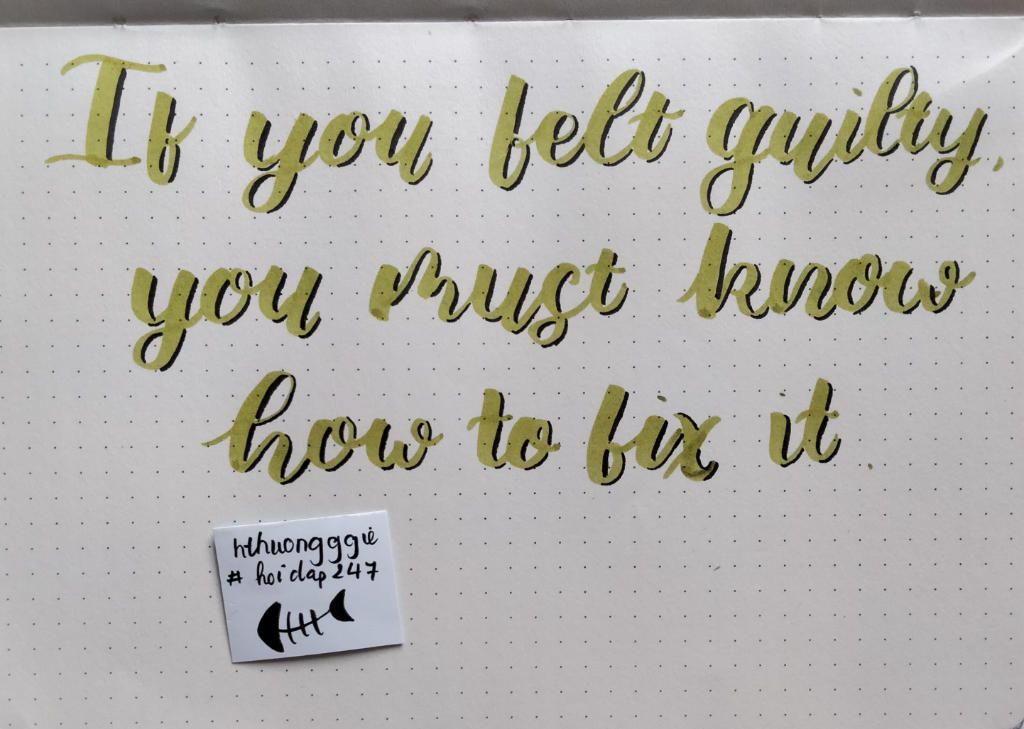 If you felt guilty,
you must know
how to fix it.
hthuongggiẻ
# hoidap247